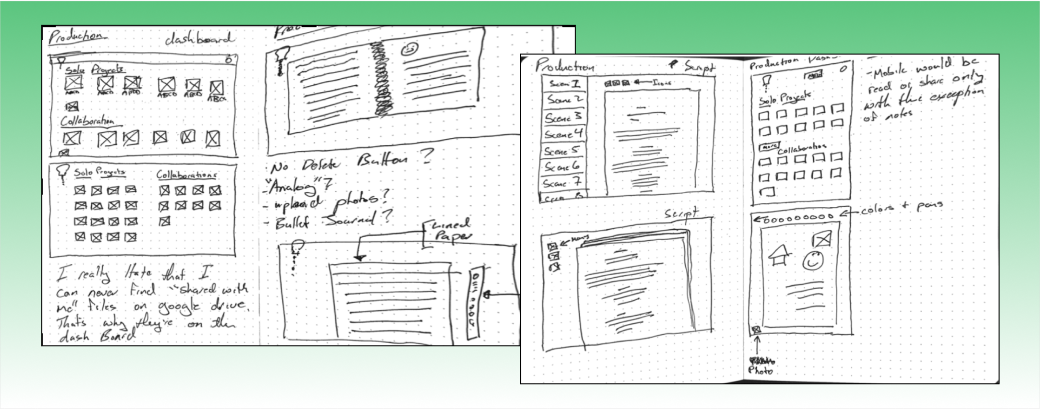 Production
dashboard
Solo Proyects
ABCD
Collaboration
Solo Proyects
Collaborations
I really Hate that I
can never find "shared with
me" files on google drive.
That's why they're on the
dash Board
No Delete Button?
-"Analog"?
-upload photos?
-Bullet Journal?
Lined
Paper
Production
Script
Scene 1
Scene 2
Scene 3
Scene 4
Scene 5
Scene 6
Scene 7
Script
Production
Solo Proyects
more
Collaborations
-Mobile would be
read or share only
with the exception
of notes
colors + pens
Photo